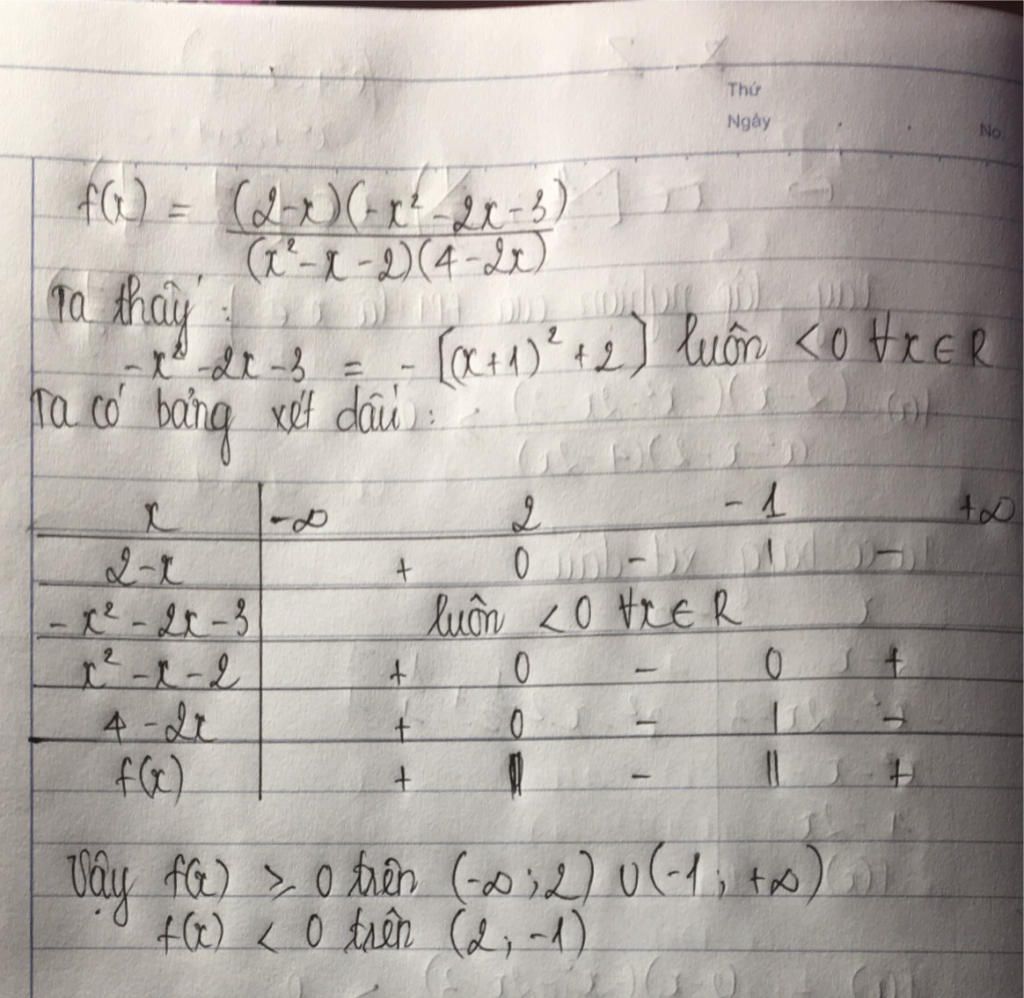 Thứ
Ngày
No.
f(x) = (2-x)(-x² - 2x - 3) / (x² - x - 2)(4 - 2x)
Ta thấy :
-x² - 2x - 3 = - [(x+1)² + 2] luôn < 0 ∀x ∈ R
Ta có bảng xét dấu :
x | -∞ 2 -1 +∞
2-x | + 0 - | -
-x² - 2x - 3 | luôn < 0 ∀x ∈ R
x² - x - 2 | + 0 - 0 +
4 - 2x | + 0 - | -
f(x) | + || - || +
Vậy f(x) ⩾ 0 trên (-∞ ; 2) ∪ (-1 ; +∞)
f(x) < 0 trên (2 ; -1)